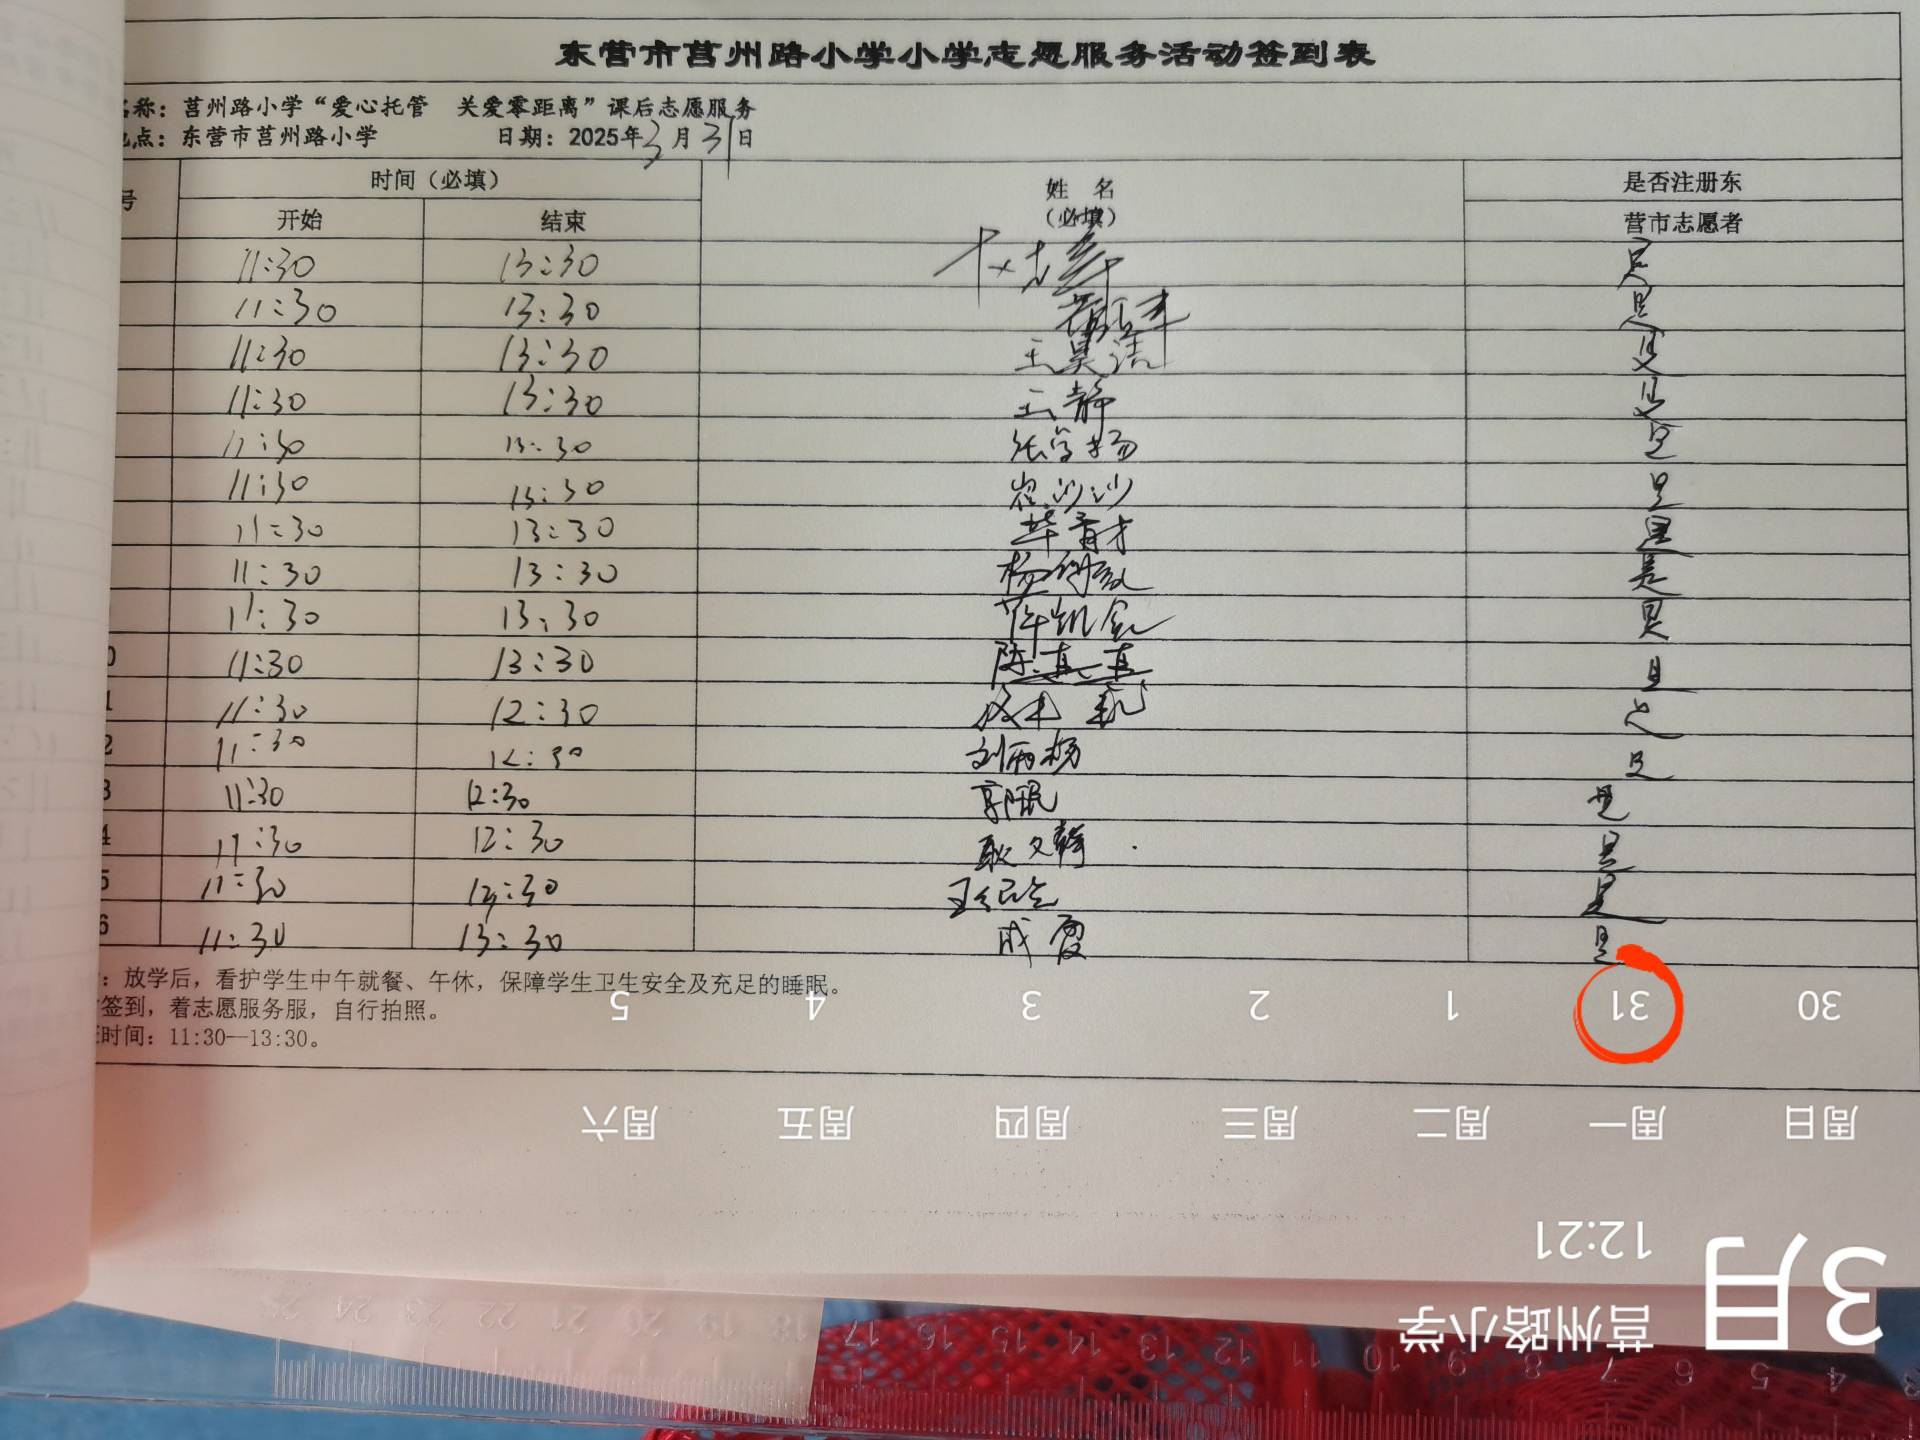 东营市莒州路小学小学志愿服务活动签到表
名称：莒州路小学“爱心托管 关爱零距离”课后志愿服务
地点：东营市莒州路小学 日期：2025年3月31日
号 时间（必填） 姓 名 是否注册东
开始 结束 （必填） 营市志愿者
11:30 13:30 是
11:30 13:30 是
11:30 13:30 王昊洁 是
11:30 13:30 王静 是
11:30 13:30 张学扬 是
11:30 13:30 崔沙沙 是
11:30 13:30 毕育才 是
11:30 13:30 是
11:30 13:30 是
0 11:30 13:30 陈真真 是
1 11:30 12:30 是
2 11:30 12:30 刘雨杨 是
3 11:30 12:30 郭珉 是
4 11:30 12:30 耿文静 是
5 11:30 是
6 11:30 13:30 成霞 是
：放学后，看护学生中午就餐、午休，保障学生卫生安全及充足的睡眠。
签到，着志愿服务服，自行拍照。
时间：11:30—13:30。
3月
12:21
莒州路小学
周日 周一 周二 周三 周四 周五 周六
30 31 1 2 3 4 5
25 24 23 22 21 20 19 18 17 16 15 14 13 12 11 10 9 8 7 6 5 4 3